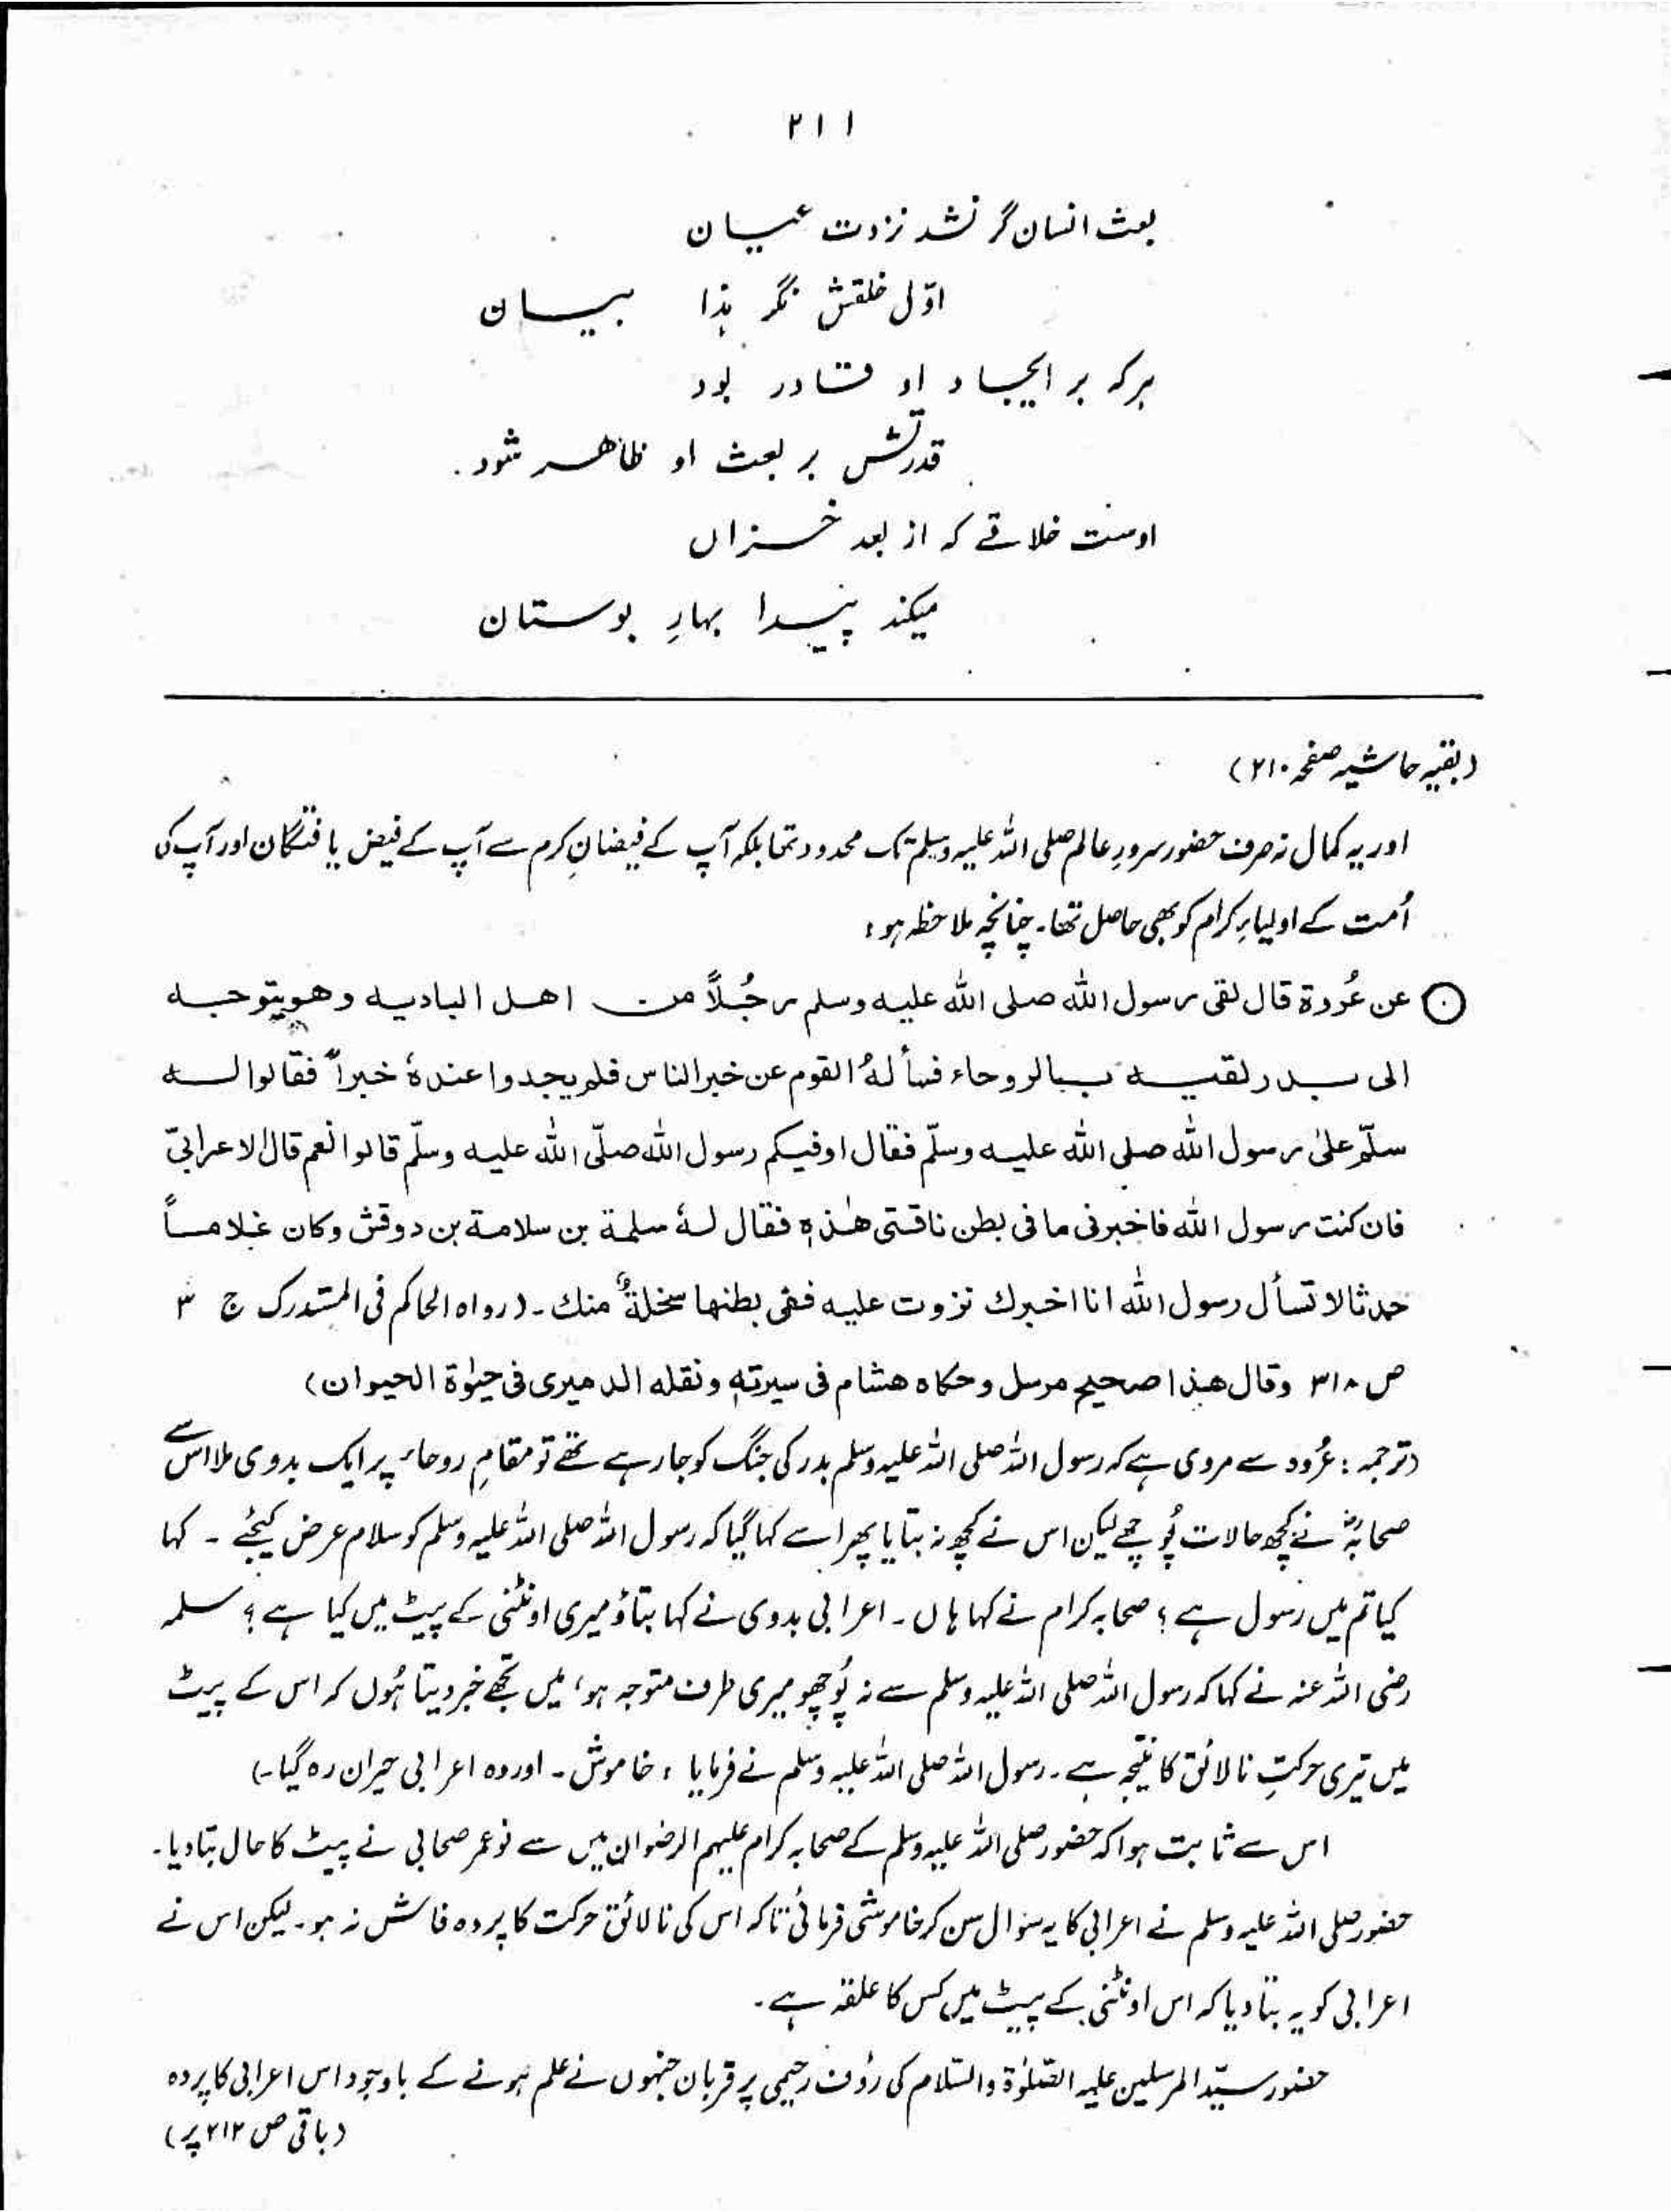 ۲۱۱
بعث انسان گر نشد نزدت عیان
اوّل خلقش نگر ہذا بیان
ہرکہ بر ایجاد او قادر بود
قدرتش بر بعث او ظاهر شود۔
اوست خلاقے کہ از بعد خزاں
میکند پیدا بہارِ بوستان
(بقیہ حاشیہ صفحہ ۲۱۰)
اور یہ کمال نہ صرف حضور سرورِ عالم صلی اللہ علیہ وسلم تک محدود تھا بلکہ آپ کے فیضانِ کرم سے آپ کے فیض یافتگان اور آپ کی
اُمت کے اولیاءِ کرام کو بھی حاصل تھا۔ چنانچہ ملاحظہ ہو:
عن عُروة قال لقی رسول الله صلی الله علیه وسلم رجُلاً من اهل البادیه وهو یتوجه
الی بدر لقیه بالروحاء فسألهُ القوم عن خبر الناس فلم یجدوا عندهٗ خبراً فقالوا له
سلّم علیٰ رسول الله صلی الله علیه وسلّم فقال اوفیکم رسول الله صلّی الله علیه وسلّم قالوا نعم قال الاعرابیّ
فان کنت رسول الله فاخبرنی ما فی بطن ناقتی هٰذهٖ فقال لهٗ سلمة بن سلامة بن دوقش وکان غلاماً
حدثا لا تسأل رسول الله انا اخبرك نزوت علیه ففی بطنها سخلةٌ منك۔ (رواه الحاکم فی المستدرک ج ۳
ص ۳۱۸ وقال هذا صحیح مرسل وحکاه هشام فی سیرتهٖ ونقله الدمیری فی حیٰوة الحیوان)
(ترجمہ: عُروہ سے مروی ہے کہ رسول اللہ صلی اللہ علیہ وسلم بدر کی جنگ کو جا رہے تھے تو مقامِ روحاء پر ایک بدوی ملا اس سے
صحابہؓ نے کچھ حالات پُوچھے لیکن اس نے کچھ نہ بتایا پھر اسے کہا گیا کہ رسول اللہ صلی اللہ علیہ وسلم کو سلام عرض کیجئے۔ کہا
کیا تم میں رسول ہے؟ صحابہ کرام نے کہا ہاں۔ اعرابی بدوی نے کہا بتاؤ میری اونٹنی کے پیٹ میں کیا ہے؟ سلمہ
رضی اللہ عنہ نے کہا کہ رسول اللہ صلی اللہ علیہ وسلم سے نہ پُوچھو میری طرف متوجہ ہو، میں تجھے خبر دیتا ہُوں کہ اس کے پیٹ
میں تیری حرکتِ نالائق کا نتیجہ ہے۔ رسول اللہ صلی اللہ علیہ وسلم نے فرمایا، خاموش۔ اور وہ اعرابی حیران رہ گیا۔)
اس سے ثابت ہوا کہ حضور صلی اللہ علیہ وسلم کے صحابہ کرام علیہم الرضوان میں سے نوعمر صحابی نے پیٹ کا حال بتا دیا۔
حضور صلی اللہ علیہ وسلم نے اعرابی کا یہ سوال سن کر خاموشی فرمائی تاکہ اس کی نالائق حرکت کا پردہ فاش نہ ہو۔ لیکن اس نے
اعرابی کو یہ بتا دیا کہ اس اونٹنی کے پیٹ میں کس کا علقہ ہے۔
حضور سیّد المرسلین علیہ الصّلوٰة والسّلام کی رؤف رحیمی پر قربان جنہوں نے علم ہونے کے باوجود اس اعرابی کا پردہ
(باقی ص ۲۱۲ پر)